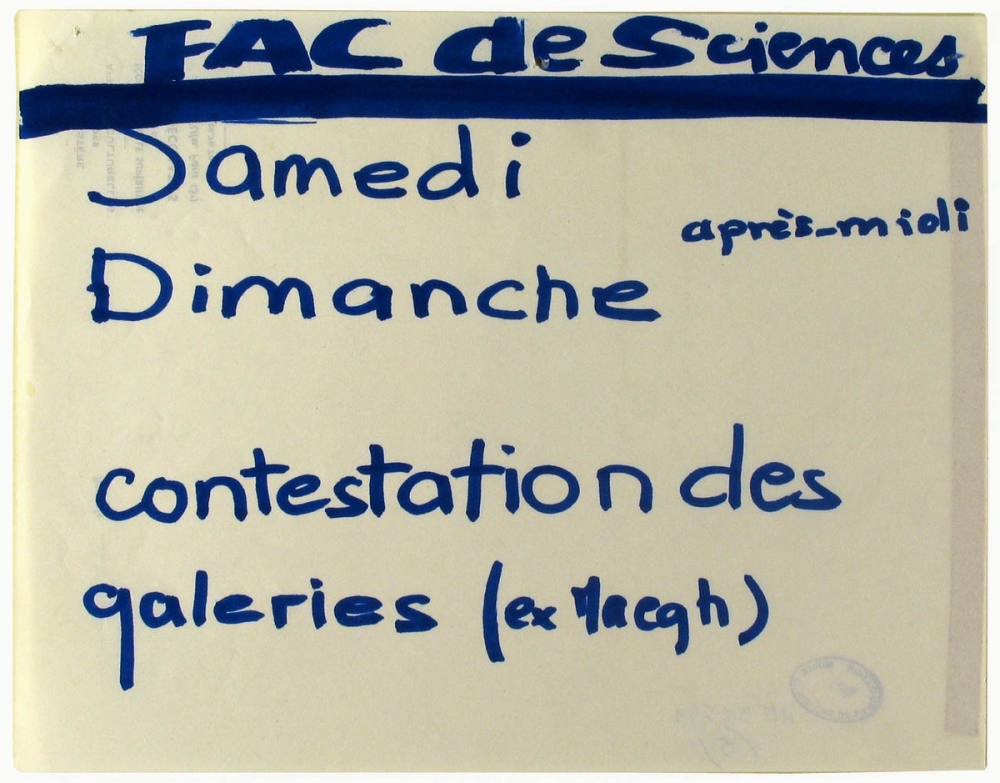 FAC de Sciences
Samedi
après-midi
Dimanche
contestation des
galeries (ex Macgh)